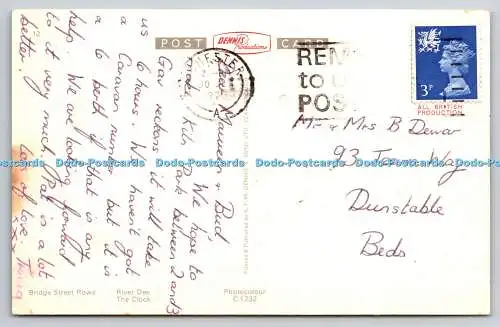 POST DENNIS CARD
Productions
Dear Maureen & Bud
We hope to
make Kiln Park between 2 and 3
Gav reckons it will take
6 hours. We haven't got
a Caravan number but it is
a 6 berth if that is any
help. We are looking forward
to it very much. Pat is a lot
better.
Lots of love
xxx
REM
to u
POS
3P
ALL BRITISH
PRODUCTION
Mr & Mrs B Dewar
93 Way
Dunstable
Beds.
Dodo-Postcards Dodo-Postcards Dodo-Postcards Dodo-Postcards Dodo-Postcards
Bridge Street Rows River Dee
The Clock
Photocolour
C.1232